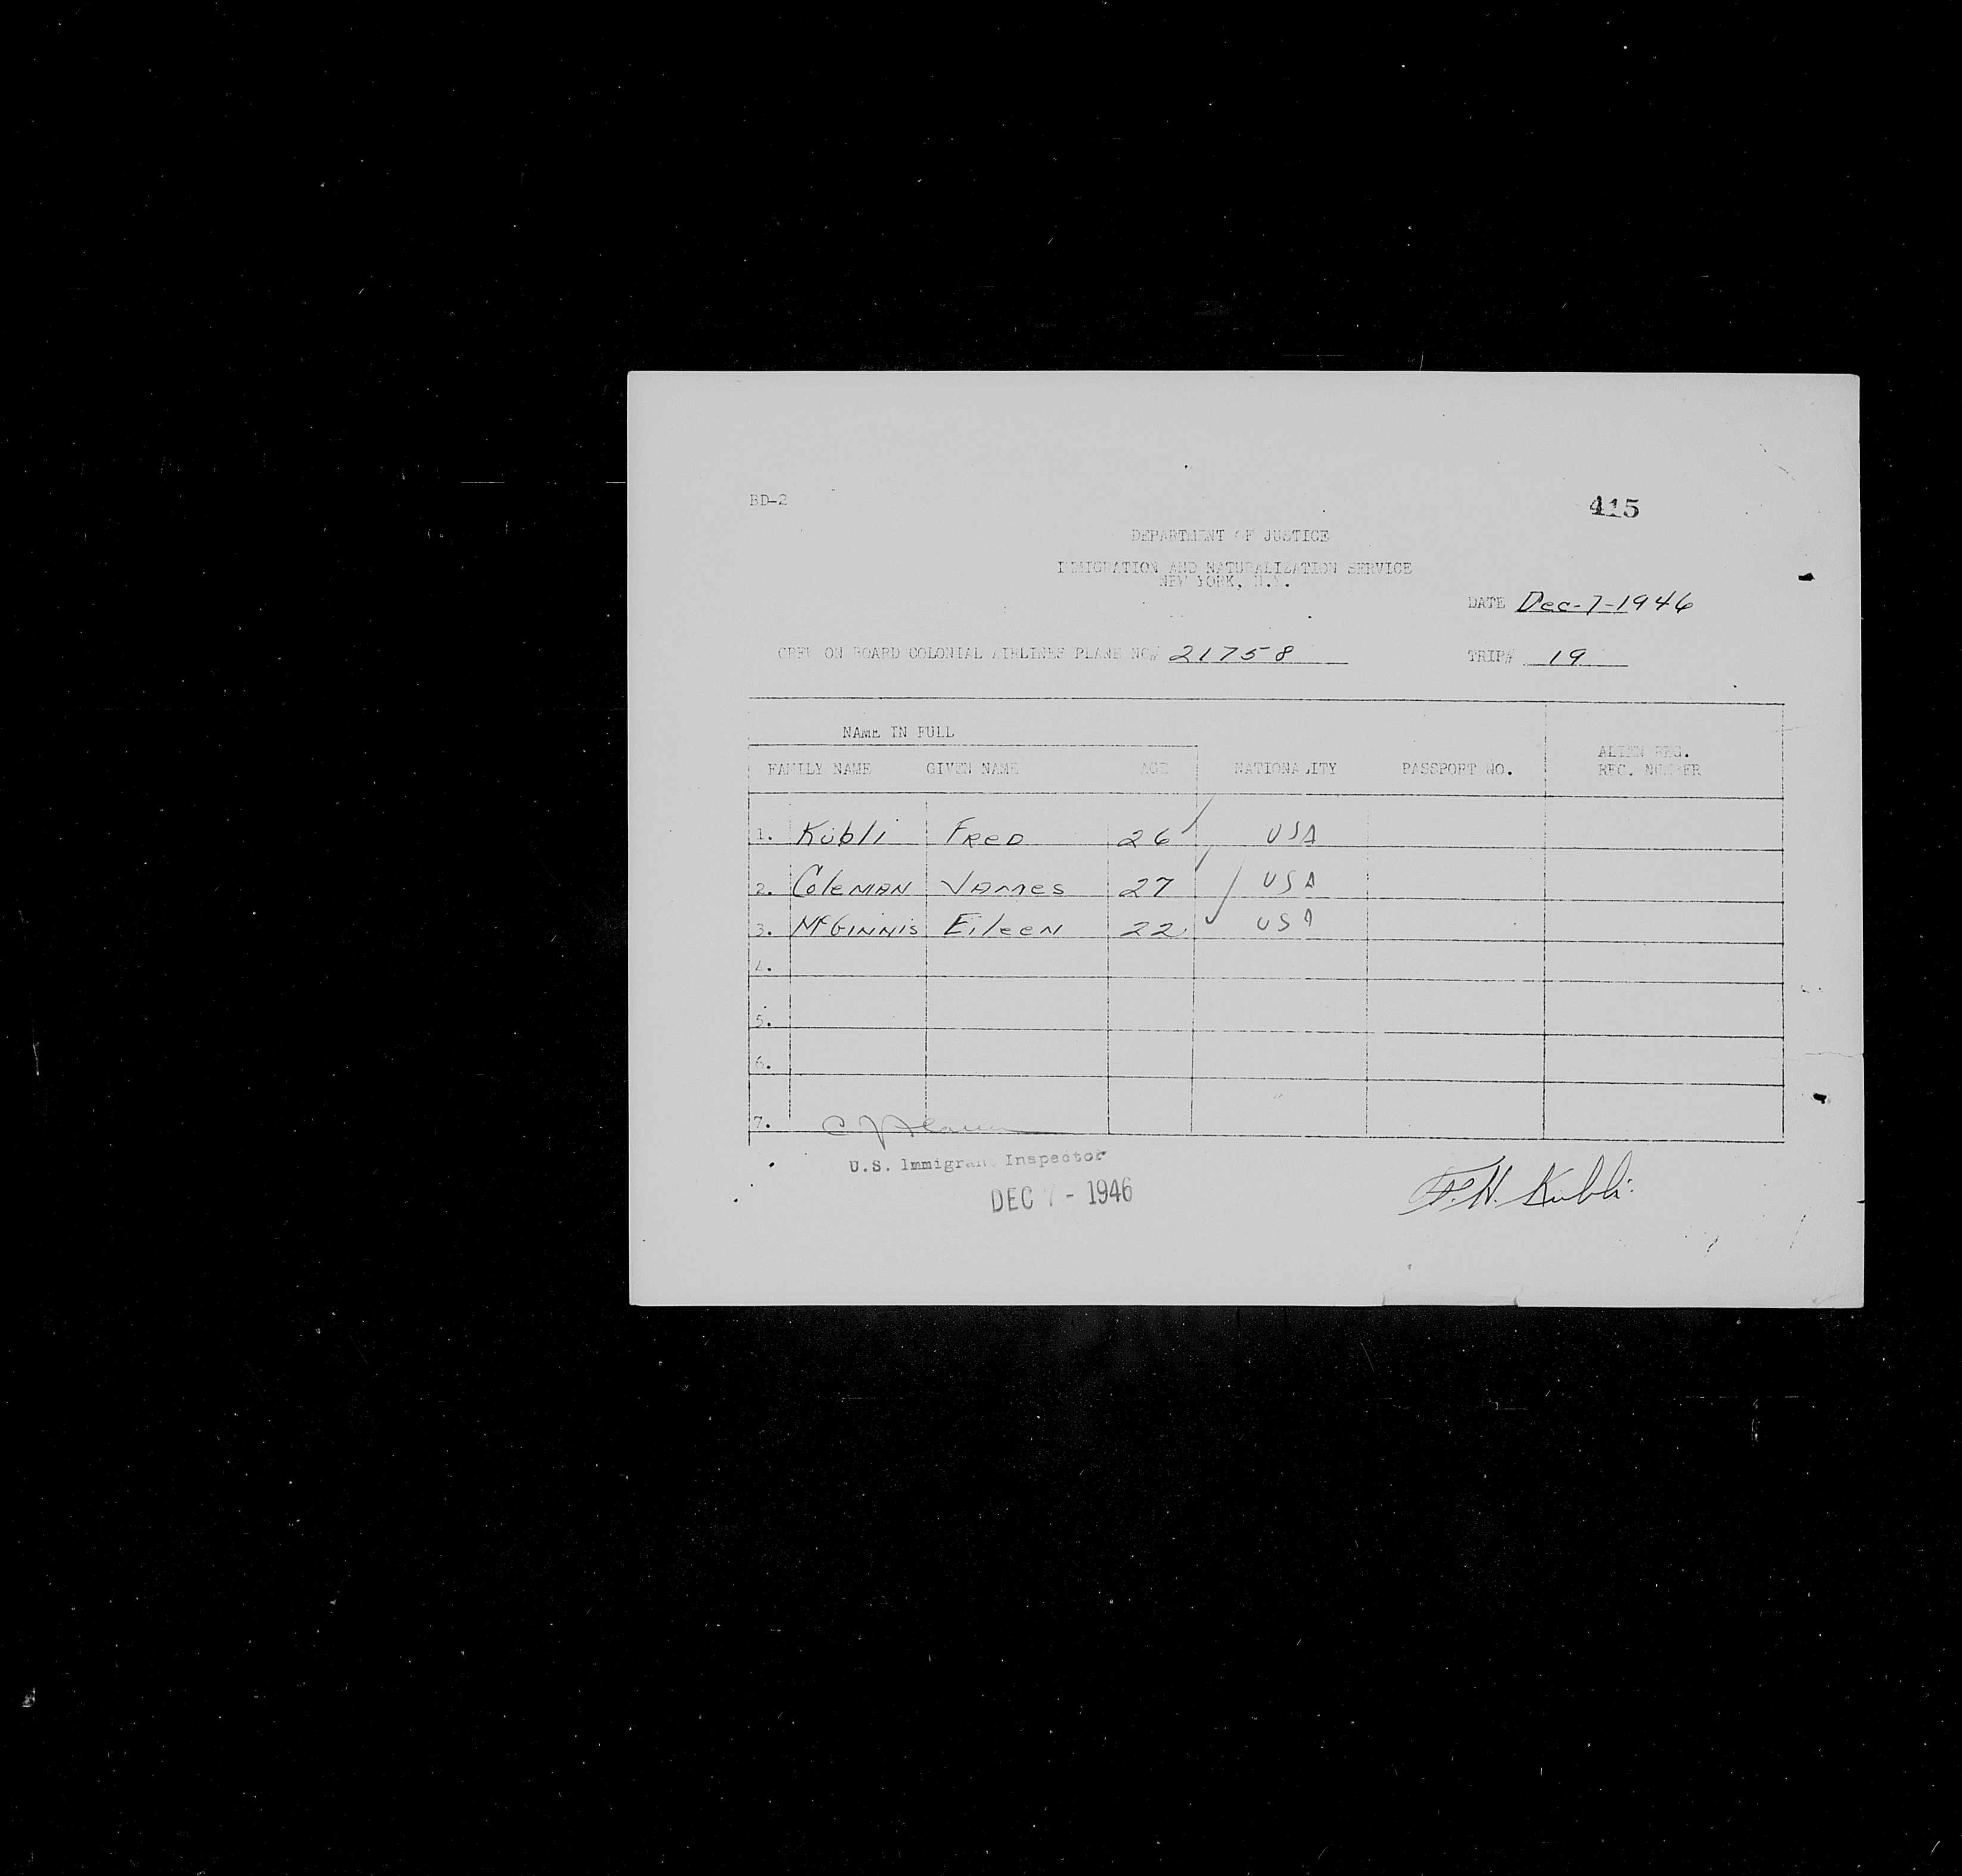 BD-2
415
DEPARTMENT OF JUSTICE
IMMIGRATION AND NATURALIZATION SERVICE
NEW YORK, N.Y.
DATE Dec-7-1946
CREW ON BOARD COLONIAL AIRLINES PLANE NO# 21758 TRIP# 19
NAME IN FULL
ALIEN REG.
FAMILY NAME GIVEN NAME AGE NATIONALITY PASSPORT NO. REC. NUMBER
1. Kubli Fred 26 USA
2. Coleman James 27 USA
3. McGinnis Eileen 22 USA
4.
5.
6.
7.
U.S. Immigrant Inspector
DEC 7 - 1946
F.H. Kubli